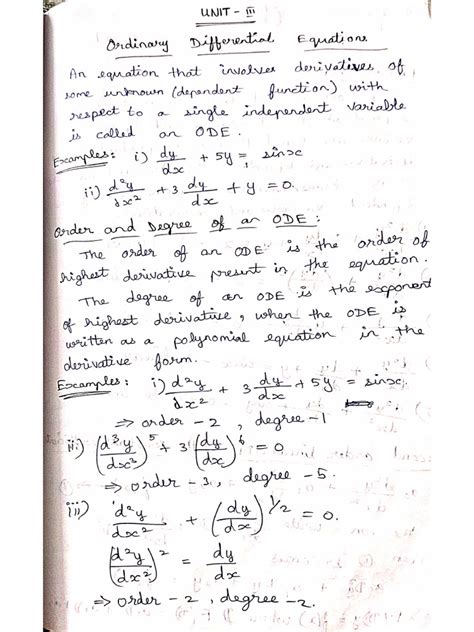 UNIT - III
Ordinary Differential Equations
An equation that involves derivatives of
some unknown (dependent function) with
respect to a single independent variable
is called an ODE.
Examples: i) dy/dx + 5y = sinx
ii) d²y/dx² + 3 dy/dx + y = 0.
Order and Degree of an ODE :
The order of an ODE is the order of
highest derivative present in the equation.
The degree of an ODE is the exponent
of highest derivative, when the ODE is
written as a polynomial equation in the
derivative form.
Examples: i) d²y/dx² + 3 dy/dx + 5y = sinx
⇒ order - 2, degree - 1
ii) (d³y/dx³)⁵ + 3 (dy/dx)⁶ = 0
⇒ order - 3, degree - 5.
iii) d²y/dx² + (dy/dx)^1/2 = 0.
(d²y/dx²)² = dy/dx
⇒ order - 2, degree - 2.